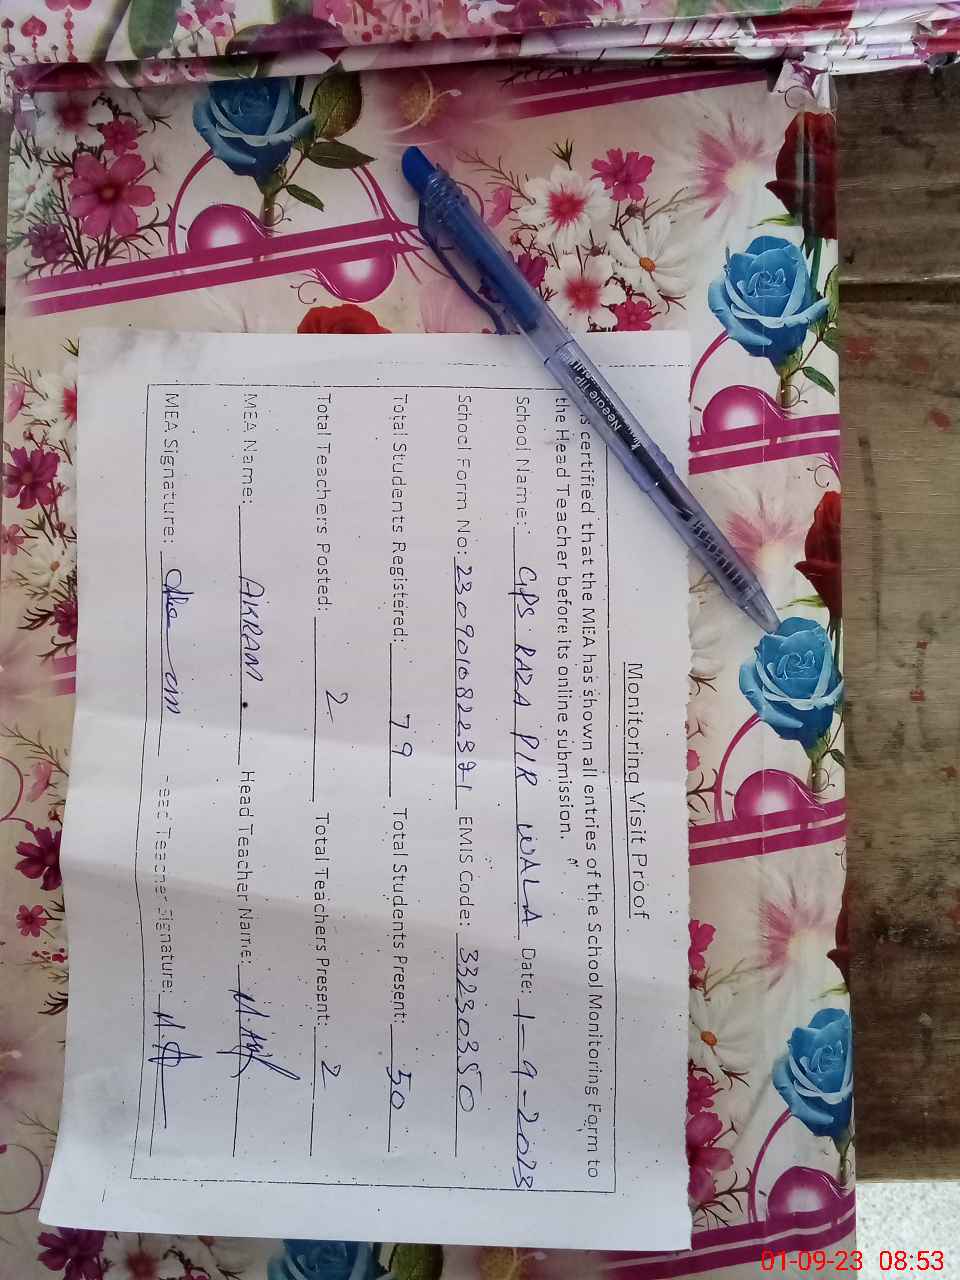 Monitoring Visit Proof
is certified that the MEA has shown all entries of the School Monitoring Form to
the Head Teacher before its online submission.
School Name: GPS RAZA PIR WALA Date: 1-9-2023
School Form No: EMIS Code: 33230350
Total Students Registered: 79 Total Students Present: 50
Total Teachers Posted: 2 Total Teachers Present: 2
MEA Name: AKRAM Head Teacher Name:
MEA Signature: Head Teacher Signature:
Needle TIP
01-09-23 08:53